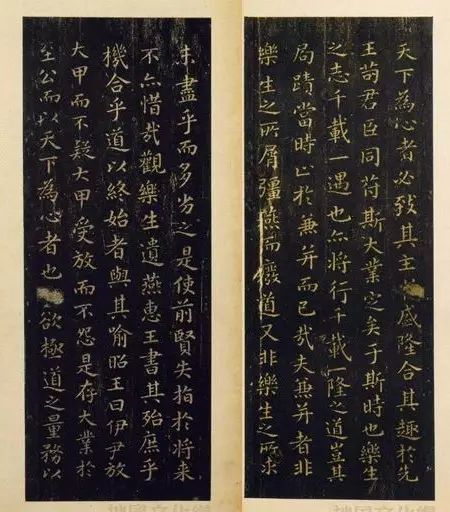 未盡乎而多劣之是使前賢失指於将来
不亦惜哉觀樂生遺燕惠王書其殆庶乎
機合乎道以終始者與其喻昭王曰伊尹放
大甲而不疑大甲受放而不怨是存大業於
至公而以天下為心者也欲極道之量務以
天下為心者必致其主盛隆合其趣於先
王苟君臣同苻斯大業定矣于斯時也樂生
之志千載一遇也亦将行千載一隆之道豈其
局蹟當時止於兼并而已哉夫兼并者非
樂生之所屑彊燕而廢道又非樂生之所求